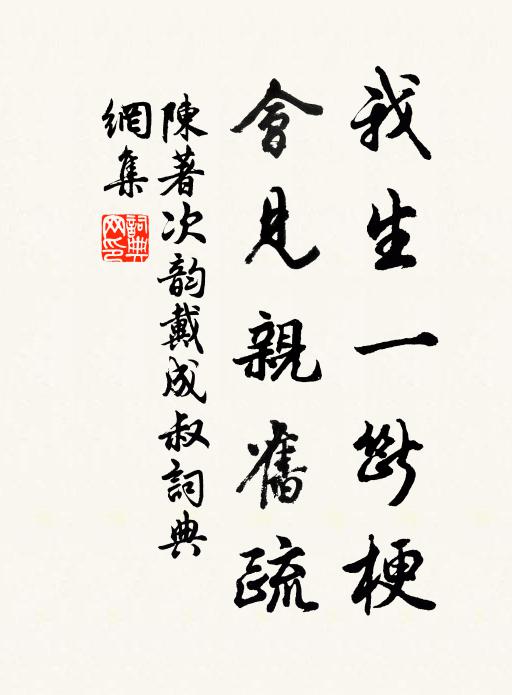 我生一斷梗
會見親舊疏
陳著次韵戴成叔詞典
網集
詞典网印